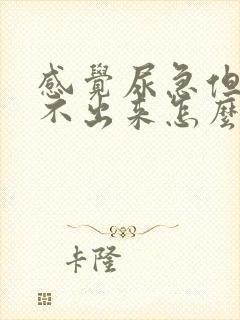 感覺尿急但
不出來怎麼
卡隆